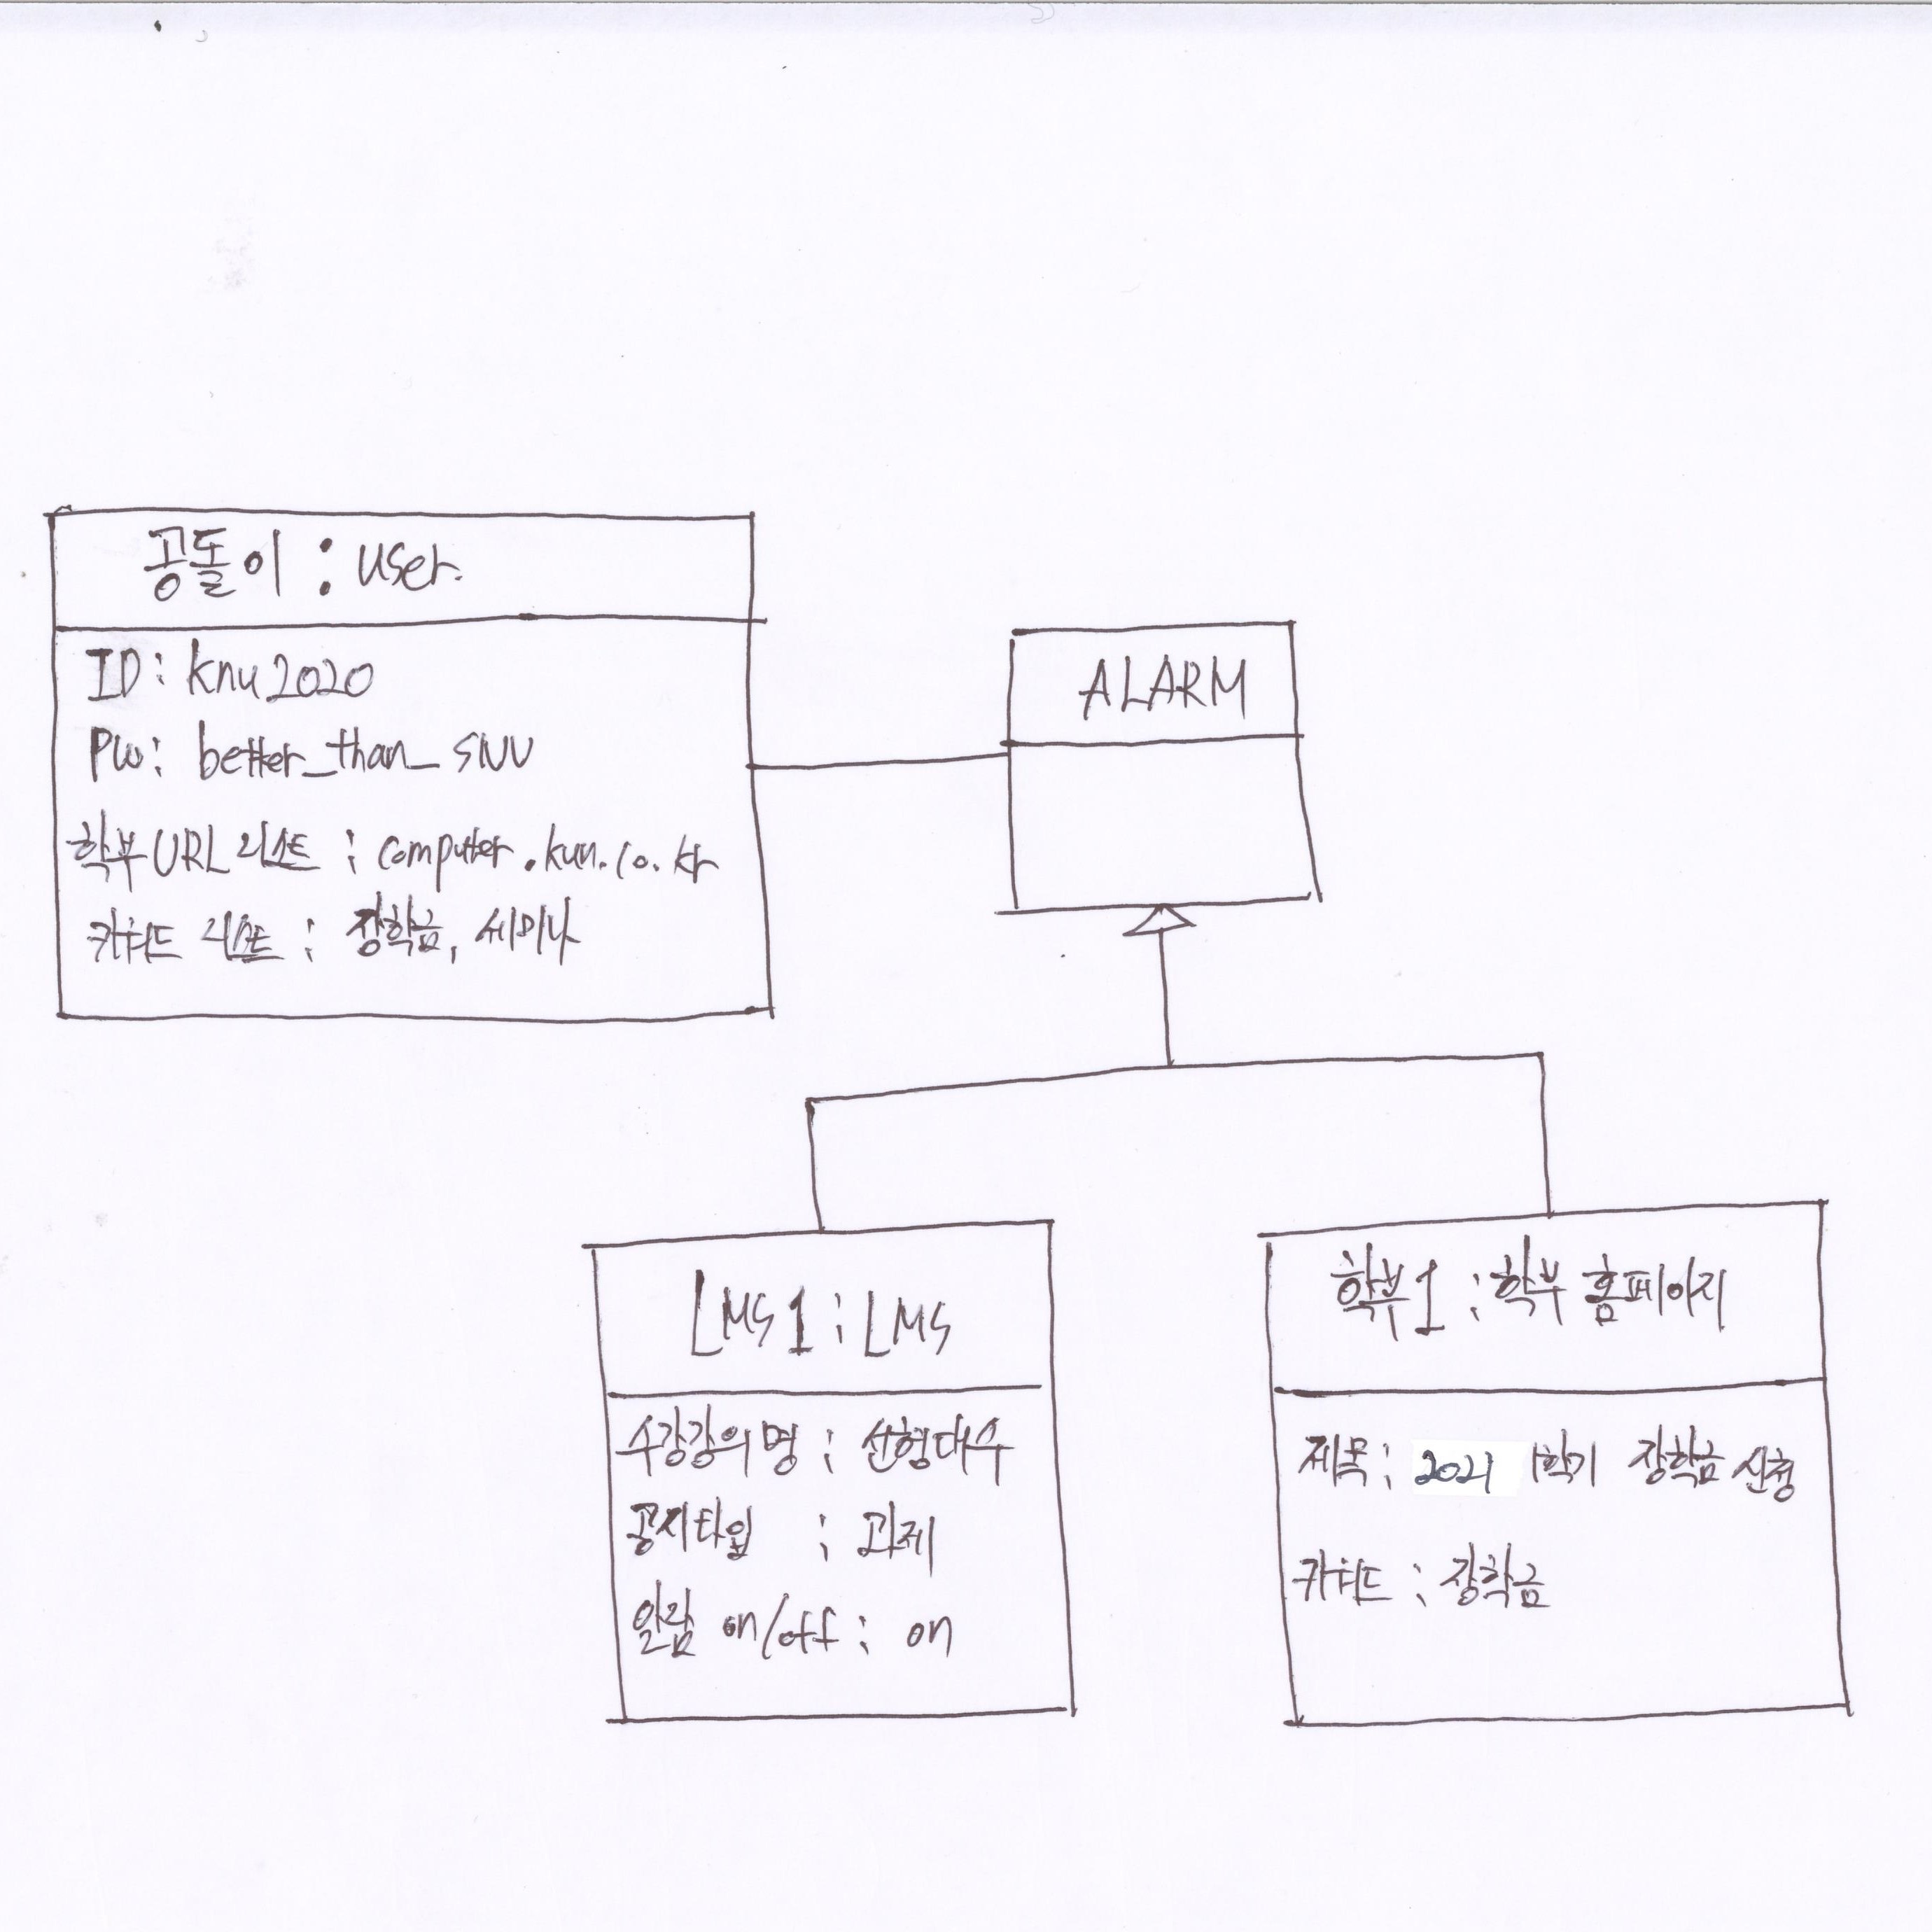 공돌이 : user.
ID : knu2020
PW : better_than_SNU
학부 URL 리스트 : computer.kun.co.kr
키워드 리스트 : 장학금, 세미나
ALARM
LMS1 : LMS
수강강의명 : 선형대수
공지타입 : 과제
알람 on/off : on
학부1 : 학부 홈페이지
제목 : 2021 1학기 장학금 신청
키워드 : 장학금